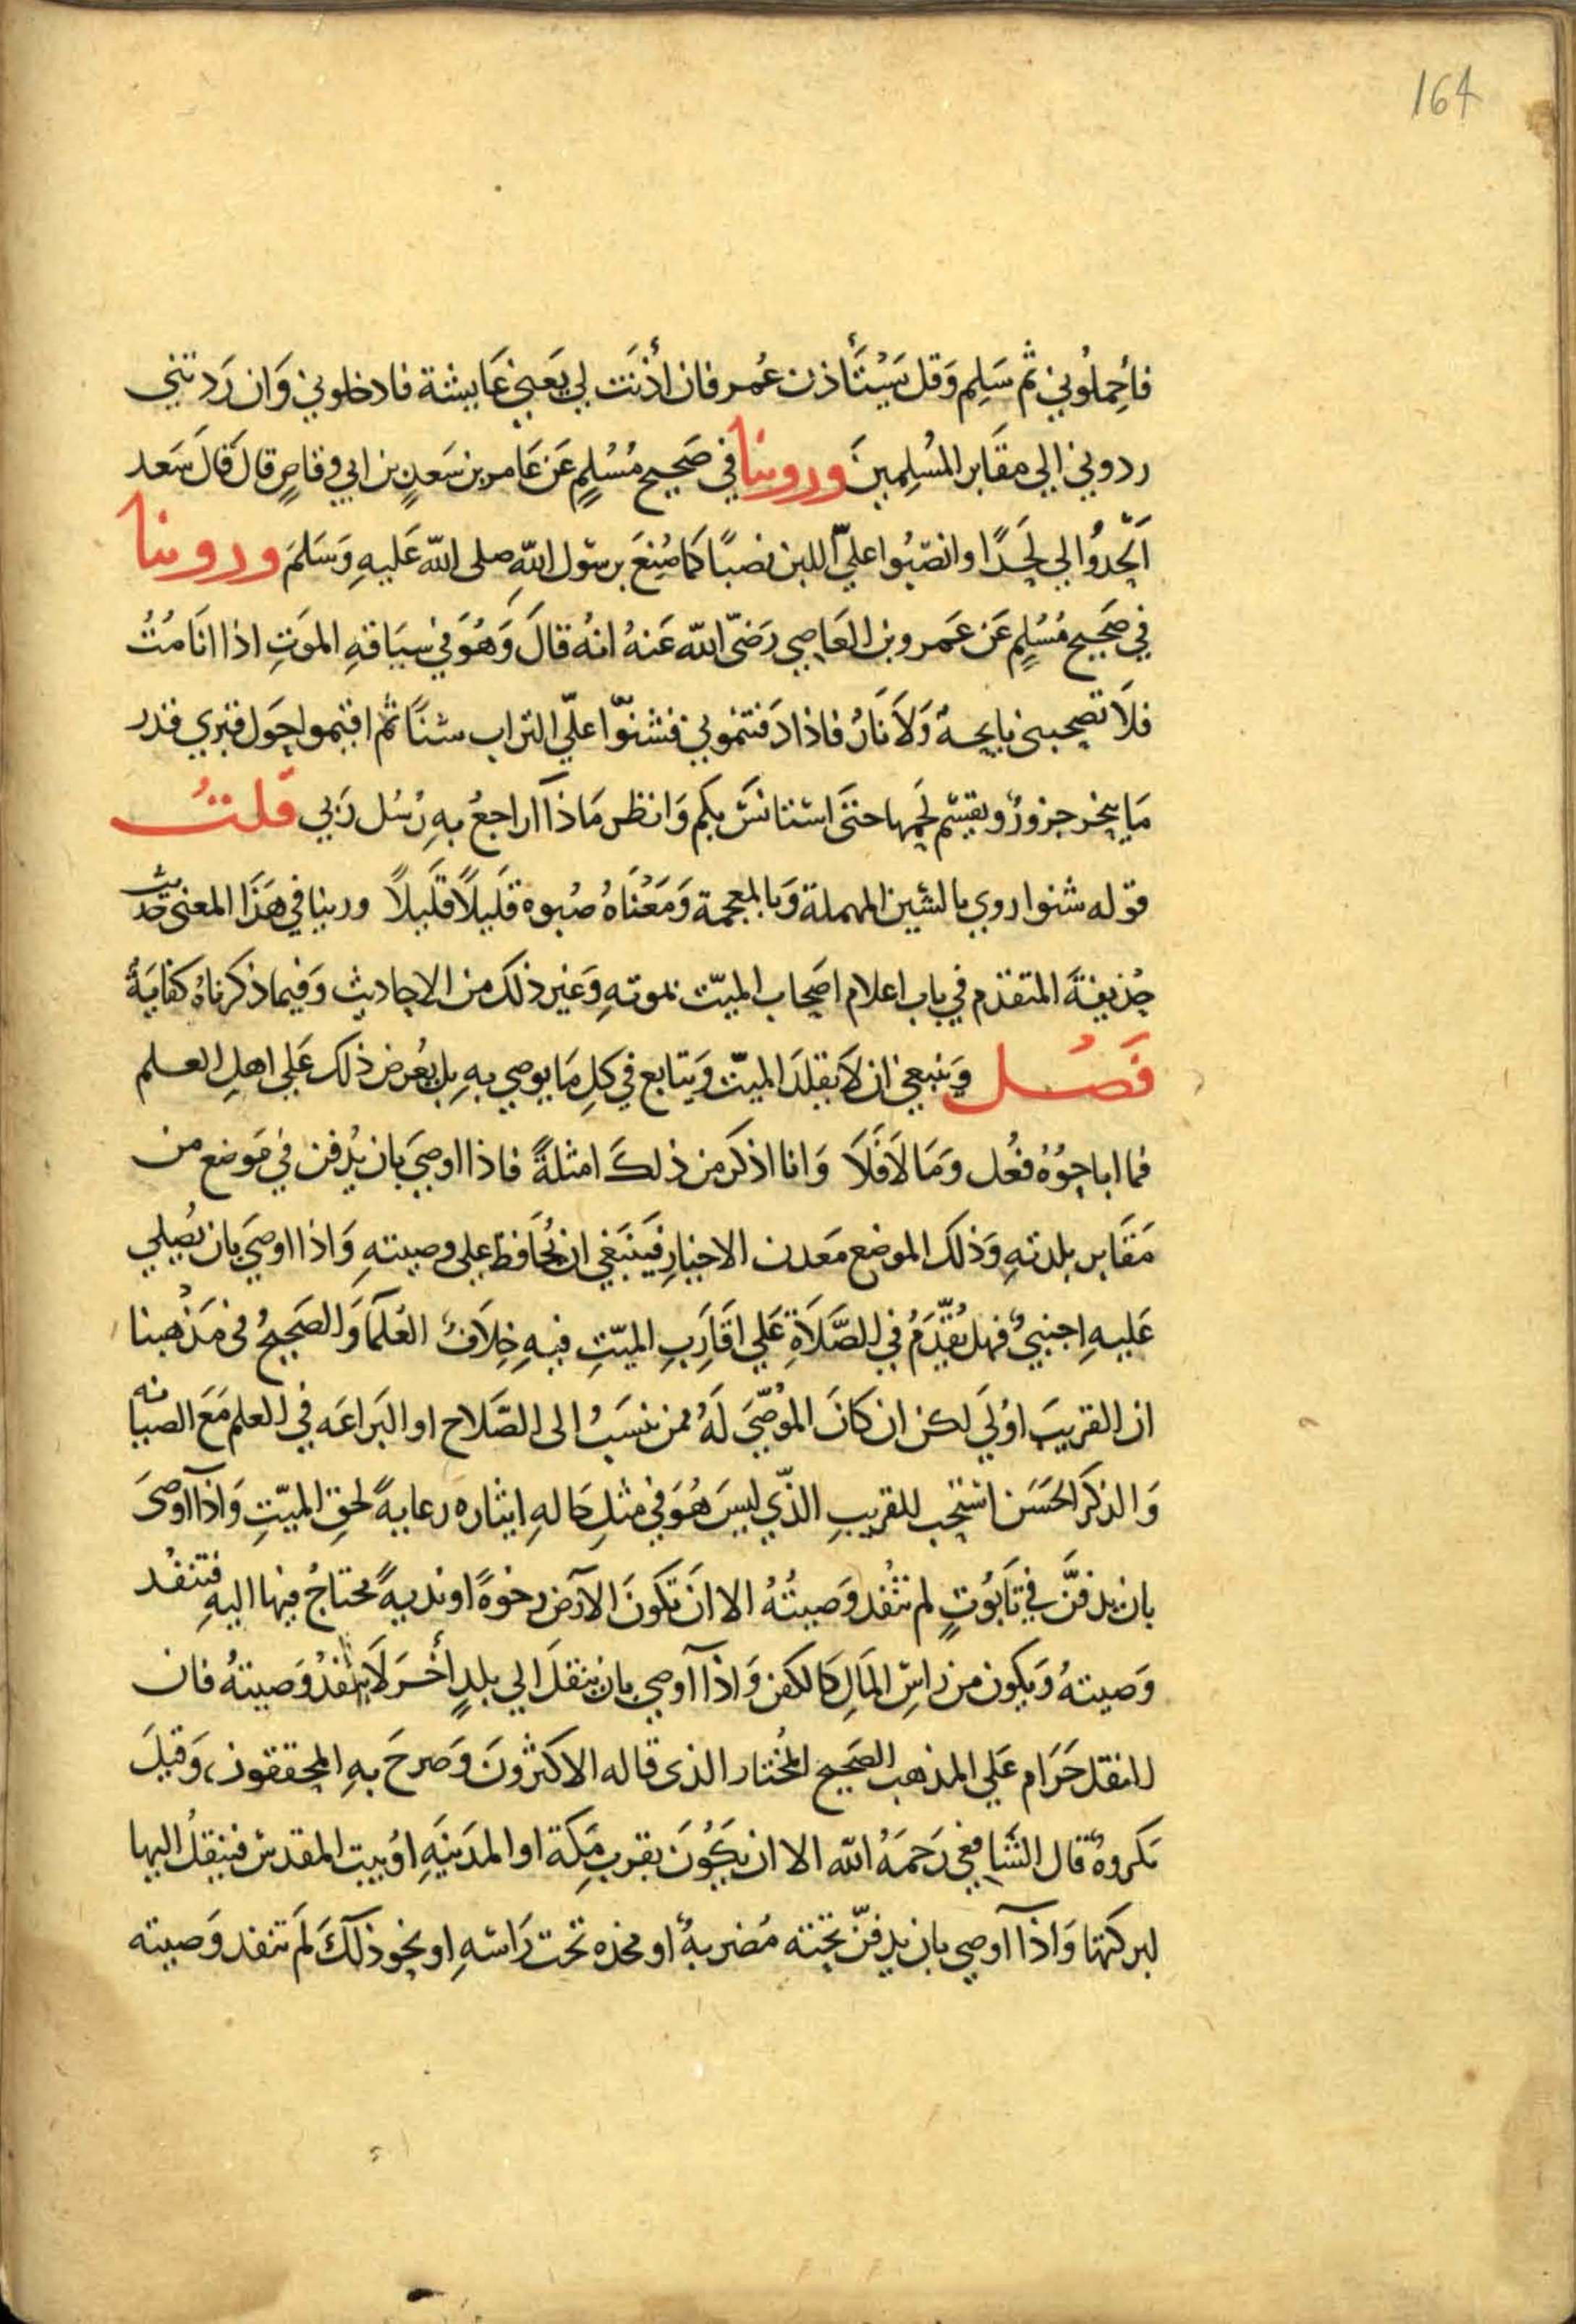 164
فأحملوني ثم سَلِم وَقل يَسْتَأذن عُمر فان أذنَت لي يَعني عَايشة فادخلوني وَان رَدتني
ردوني الي مقَابر المسُلِمينَ وروينا في صَحيح مُسُلِمٍ عَن عَامر بن سَعدٍ بن ابي وقاصٍ قالَ قالَ سَعد
اَلحِدُوا لي لَحَدًا وانصَبُوا عليّ اللبن نصبًا كما صُنِعَ برسَول اللّهِ صلى اللّه عَليهِ وَسَلمَ وروينا
في صَحيح مُسُلِمٍ عَن عَمرو بن العَاصِي رَضيَ اللّه عَنهُ انهُ قالَ وَهُوَ في سيَاقهِ الموَتِ اذا انا مُتُ
فلاَ تصحبني نايحهٌ وَلاَ نَارٌ فاذا دَفنتموني فشنوّا عليّ التراب شنًا ثم اقيموا حَول قبري قدر
مَا ينحر جزورٌ ويقسَم لحمها حتَى استانسَ بكم وَانظر مَاذا اراجعُ بهِ رُسُل رَبي قلتُ
قوله شنوا روي بالسَين المهملة وَبالمعجمة وَمَعْنَاهُ صُبوه قَليلاً قَليلاً وروينا في هَذَا المعنى حَديث
حُذيفةَ المتقدم في باب اعلام اصَحاب الميّت بموتهِ وَغير ذلكَ من الاحاديث وَفيما ذكرناهُ كفايَةٌ
فَصُل وَينبغي ان لاَ يقلدَ الميّت وَيتابع في كلِ مَا يوصي بهِ بل يُعرض ذلك عَلي اهلِ العلم
فما اباحوُهُ فعُل وَمَا لاَ فَلاَ وَانا اذكر من ذلكَ امثلةً فاذا اوصَي بان يُدفن في مَوضع من
مَقَابر بلدتهِ وَذلكَ الموضع مَعدن الاخيارِ فَينبَغي ان يُحَافظ علي وصيتهِ وَاذا اوصَي بان يُصلي
عَليهِ اجنبيٌ فهل يُقَدَّمُ في الصَّلاَةِ عَلي اقَارَبِ الميّتِ فيهِ خِلاَفُ العُلمَاَ وَالصَحيحُ في مَذهبنا
ان القريبَ اوُلي لكن ان كانَ الموُصَّيَ لَهُ ممن ينسَبُ الى الصَّلاح او البَراعَه في العلم مَعَ الصيانه
وَالذكر الحسَن استحب للقريبِ الذّي ليسَ هُوَ في مثلِ حَالهِ ايثاره رعايةً لحقِ الميّتِ وَاذا اوصَى
بان يدفنَّ في تَابُوتٍ لم تنْفد وَصيتُهُ الا انَ تكونَ الاَرَض رخوةً او نديةً محتاجُ فيها اليهِ فتنفُد
وَصيتهُ وَيكون من راسِ المَالِ كالكفن وَاذا اوصي بان ينقلَ الي بلدٍ أخَرَ لاَ تنفذُ وَصيتهُ فان
للنقل حَرَام عَلي المذهب الصَحيح المخُتار الذى قاله الاكثروُنَ وَصرحَ بهِ المحققون، وَقيلَ
مكروهٌ قال الشَافعي رَحمَهُ اللّه الا ان يَكوُنَ بقربِ مَكة او المدَينَهِ اوُ بيت المقدس فينقلُ اليها
لبركتها وَاذا اوصي بان يدفنّ تحته مُضربةٌ او مخده تحت رَاسَهِ او نحو ذلكَ لَم تنفد وَصيته